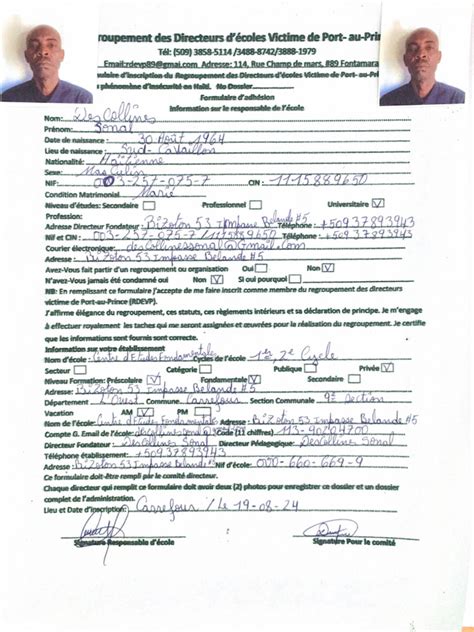 Regroupement des Directeurs d'écoles Victime de Port- au-Prin
Tél: (509) 3858-5114 /3488-8742/3888-1979
Email:rdevp89@gmail.com Adresse: 114, Rue Champ de mars, #89 Fontamara
Formulaire d'inscription du Regroupement des Directeurs d'écoles Victime de Port- au-Prin
phénomène d'insécurité en Haïti. No Dossier
Formulaire d'adhésion
Information sur le responsable de l'école
Nom: DesCollines
Prénom: Sonal
Date de naissance: 30 Août 1964
Lieu de naissance: Sud-Cavaillon
Nationalité: Haïtienne
Sexe: Masculin
NIF: 003-257-075-7 CIN : 1115889650
Condition Matrimonial Marié
Niveau d'études: Secondaire Professionnel Universitaire V
Profession:
Adresse Directeur Fondateur : Bizoton 53 Impasse Belande #5
Nif et CIN : 003-257-075-7/1115889650 Téléphone : +50937893943
Courier électronique: descollinessonal@gmail.com
Adresse : Bizoton 53 Impasse Belande #5
Avez-Vous fait partir d'un regroupement ou organisation Oui Non V
N'avez-vous jamais été condamné oui Non V Si oui pourquoi
NB: En remplissant ce formulaire J'accepte de me faire inscrit comme membre du regroupement des directeurs
victime de Port-au-Prince (RDEVP).
J'affirme élégance du regroupement, ces statuts, ces règlements intérieurs et sa déclaration de principe. Je m'engage
à effectuer royalement les taches qui me seront assignées et œuvrées pour la réalisation du regroupement. Je certifie
que les informations sont fournis sont correcte.
Information sur votre établissement
Nom d'école: Centre d'Etudes Fondamentale Cycles de l'école : 1er, 2e Cycle
Secteur Catégorie : Publique Privée V
Niveau Formation: Préscolaire V Fondamentale V Secondaire
Adresse : Bizoton 53 Impasse Belande #5
Département: L'Ouest Commun: Carrefour Section Communale 9e section
Vacation AM V PM
Nom d'école : Centre d'Etudes Fondamentale Adresse : Bizoton 53 Impasse Belande #5
Compte G. Email de l'école: descollinessonal@g Code (11 chiffres) 13-40204700
Directeur Fondateur : DesCollines Sonal Directeur Pédagogique: DesCollines Sonal
Téléphone établissement: +50937893943
Adresse : Bizoton 53 Impasse Belande #5 Nif d'école: 000-660-669-9
Ce formulaire doit être rempli par le comité directeur.
Chaque directeur qui remplit ce formulaire doit avoir deux (2) photos pour enregistrer ce dossier et un dossier
complet de l'administration.
Lieu et Date d'inscription: Carrefour / Le 19-08-24
Signature Responsable d'école Signature Pour le comité